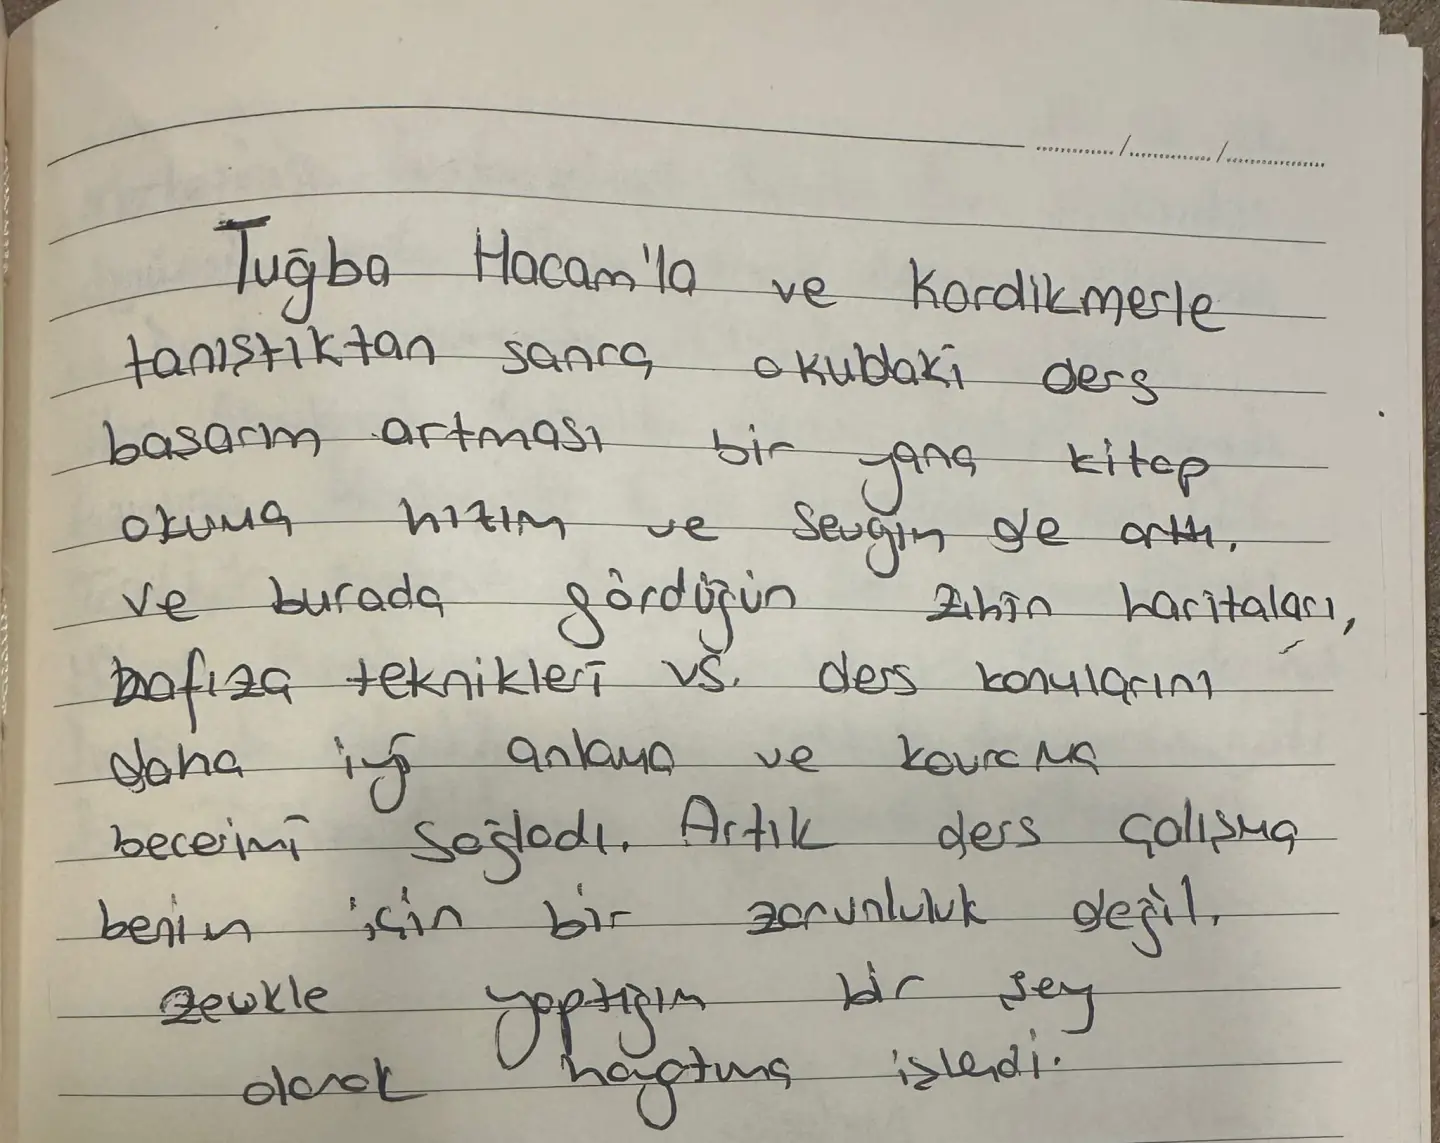 Tuğba Hocam'la ve Kordikmerle
tanıştıktan sonra okuldaki ders
başarım artması bir yana kitap
okuma hızım ve sevgim de arttı.
ve burada gördüğüm zihin haritaları,
hafıza teknikleri vs. ders konularını
daha iyi anlama ve kavrama
becerimi sağladı. Artık ders çalışma
benim için bir zorunluluk değil,
zevkle yaptığım bir şey
olarak hayatıma işlendi.